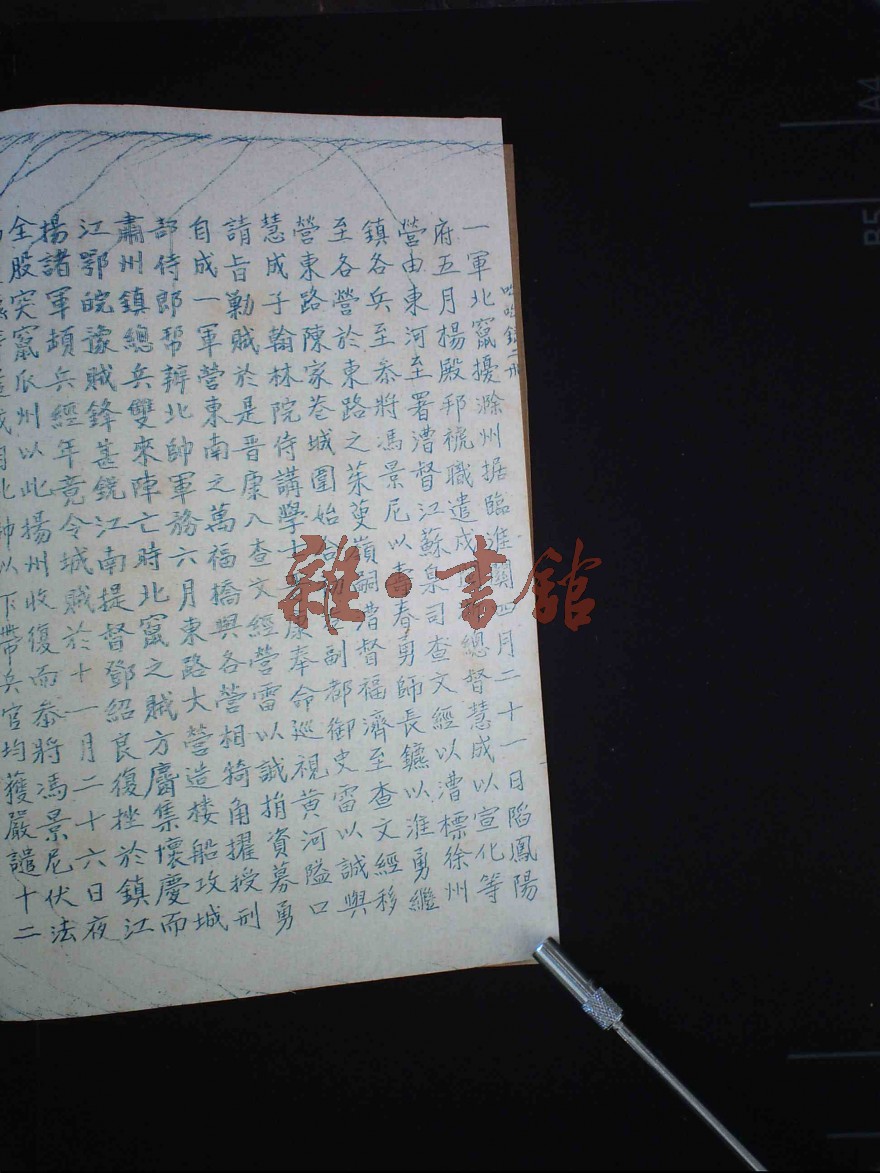 咄咄錄二册
一軍北竄擾滁州据臨淮關四月二十一日陷鳳陽
府五月楊殿邦褫職遣戍總督慧成以宣化等
營由東河至署漕督江蘇臬司查文經以漕標徐州
鎮各兵至叅將馮景尼以壽春勇師長鑣以淮勇繼
至各營於東路之茱萸嶺嗣漕督福濟至查文經移
營東路陳家巷城圍始合副都御史雷以諴與
慧成子翰林院侍講學士晉康奉命巡視黃河隘口
請旨勦賊於是晉康入查文經營雷以諴捐資募勇
自成一軍營東南之萬福橋與各營相犄角擢授刑
部侍郎帮辦北帥軍務六月東路大營造楼船攻城
肅州鎮總兵雙來陣亡時北竄之賊方麕集懷慶而
江鄂皖豫賊鋒甚銳江南提督鄧紹良復挫於鎮江
揚諸軍頓兵經年竟令城賊於十一月二十六日夜
全股突竄瓜州以此揚州收復而叅將馮景尼伏法
帥以下帶兵官均獲嚴譴十二
雜·書館
A4
B5